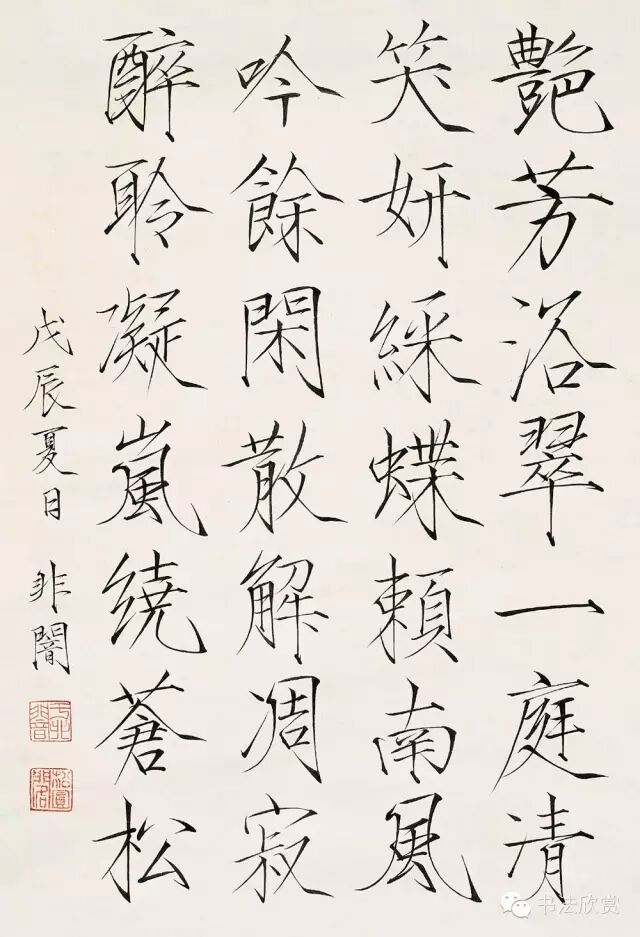 艷芳浴翠一庭清
笑妍綵蝶賴南風
吟餘閑散解凋寂
醉聆凝嵐繞蒼松
戊辰夏日 非闇
书法欣赏